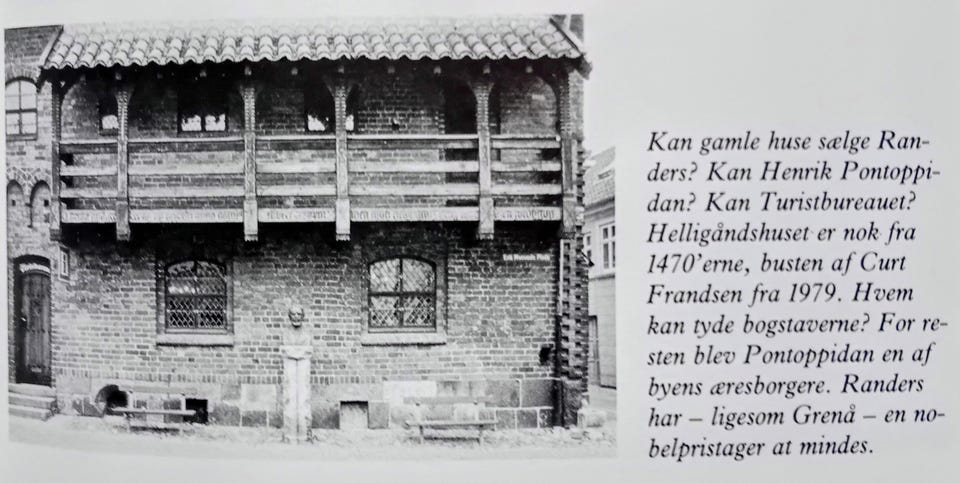 Kan gamle huse sælge Ran-
ders? Kan Henrik Pontoppi-
dan? Kan Turistbureauet?
Helligåndshuset er nok fra
1470'erne, busten af Curt
Frandsen fra 1979. Hvem
kan tyde bogstaverne? For re-
sten blev Pontoppidan en af
byens æresborgere. Randers
har – ligesom Grenå – en no-
belpristager at mindes.